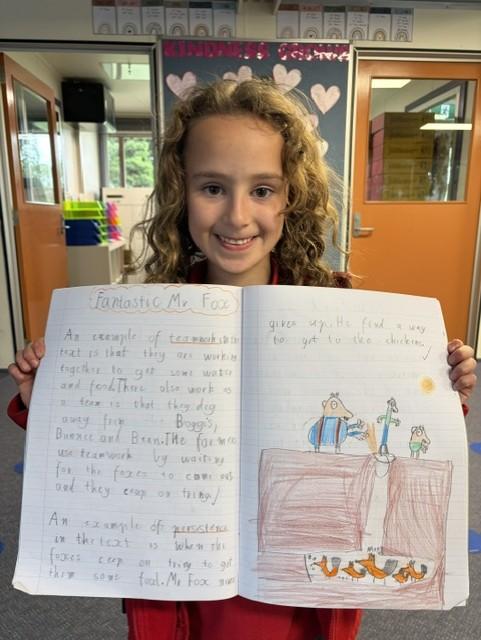 KINDNESS
Fantastic Mr. Fox
An example of teamwork in
text is that they are working
together to get some water
and food. There also work as
a team is that they dig
away from Boggis,
Bunnce and Bean. The farmers
use teamwork by waiting
for the foxes to come out
and they ceap on trying
An example of persistence
in the text is when the
foxes ceep on triing to get
them some food. Mr Fox never
gives up. He find a way
to get to the chickins